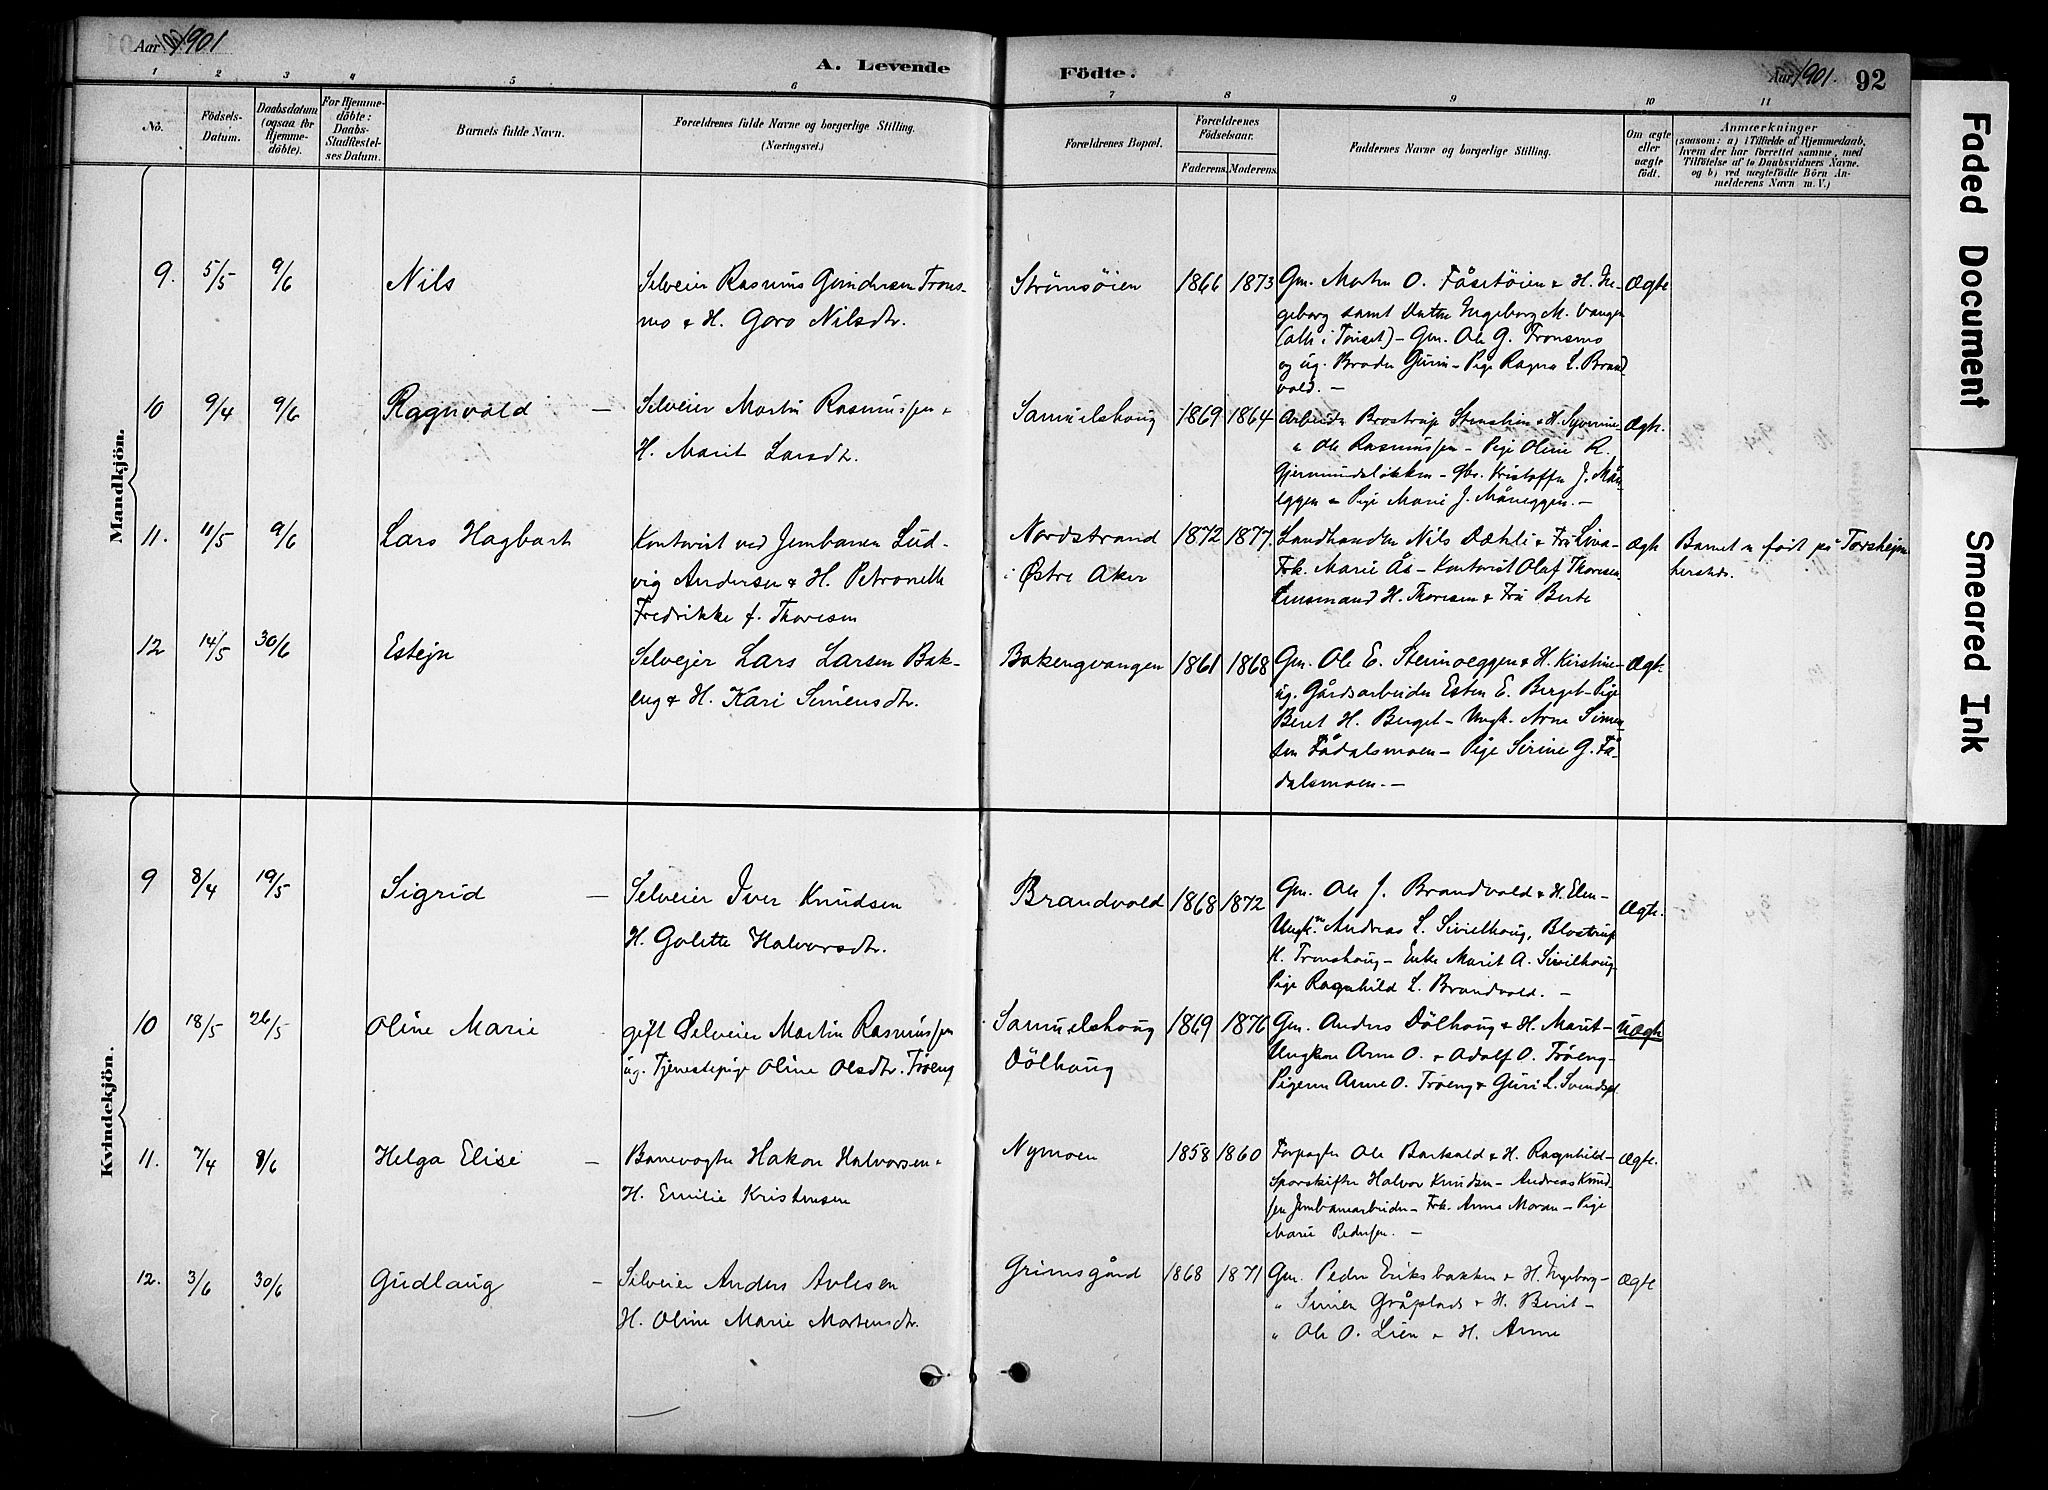 Aar 1901
A. Levende
Födte.
Aar 1901. 92
1 2 3 4 5 6 7 8 9 10 11
No.
Födsels-
Datum.
Daabsdatum
(ogsaa for
Hjemme-
döbte).
For Hjemme-
döbte:
Daabs-
Stadfæstel-
ses Datum.
Barnets fulde Navn.
Forældrenes fulde Navne og borgerlige Stilling.
(Næringsvei.)
Forældrenes Bopæl.
Forældrenes
Födselsaar.
Faderens. Moderens.
Faddernes Navne og borgerlige Stilling.
Om ægte
eller
uægte
födt.
Anmærkninger
(saasom: a) i Tilfælde af Hjemmedaab,
hvem der har forrettet samme, med
Tilföielse af to Daabsvidners Navne.
og b) ved uægtefödte Börn An-
melderens Navn m. V.)
Mandkjön.
9. 5/5 9/6 Nils
Selveier Rasmus Gundersen Trons-
mo & H. Goro Nilsdtr.
Strømsöien 1866 1873
Gm. Morten O. Fåsetöien & H. In-
geborg samt Datter Ingeborg M. Vangen
(alle i Tönset) - Gm. Ole G. Tronsmo
og ug. Broder Gunn - Pige Ragna L. Brand-
vold. -
Ægte
10 9/4 9/6 Ragnvald -
Selveier Martin Rasmussen &
H. Marit Larsdtr.
Samuelshoug 1869 1864
Arbeider Brostrup Stenshem & H. Syverine
" Ole Rasmussen - Pige Oline R.
Gjermundsløkken - Gbr. Kristoffer J. Mån-
eggen & Pige Marie J. Måneggen. -
Ægte.
11. 11/5 9/6 Lars Hagbart
Kontorist ved Jernbanen Lud-
vig Andersen & H. Petronelle
Fredrikke f. Thoresen
Nordstrand
i Østre Aker
1872 1877.
Landhandler Nils Dæhli & Fru Lina-
Frk. Marie Ås - Kontorist Olaf Thoresen
Lensmand H. Thoresen & Fru Berte
Ægte
Barnet er født på Torshejm
hersteds.
12 14/5 30/6 Estejn
Selvejer Lars Larsen Bak-
eng & H. Kari Simensdtr.
Bakengvangen 1861 1868
Gm. Ole E. Steinveggen & H. Kirstine-
ug. Gårdsarbeider Esten E. Berget - Pige
Beret H. Berget - Ungk. Arne Simen-
sen Fådalsmoen - Pige Sirine G. Få-
dalsmoen. -
Ægte.
Kvindekjön.
9 8/4 19/5 Sigrid -
Selveier Iver Knudsen
H. Golette Halvorsdtr.
Brandvold 1868 1872
Gm. Ole J. Brandvold & H. Elen -
Ungk. Andreas L. Sivilhoug, Blostrup
K. Tronshoug - Enke Marit A. Sivilhoug
Pige Ragnhild L. Brandvold. -
Ægte.
10 18/5 26/5 Oline Marie
gift Selveier Martin Rasmussen
ug. Tjenestepige Oline Olsdtr. Trøeng
Samuelshoug
Dölhoug
1869 1876
Gm. Anders Dölhoug & H. Marit -
Ungkarl Arne O. & Adolf O. Trøeng -
Pigerne Anne O. Trøeng & Guri L. Svendspl.
Uægte
11. 7/4 9/6 Helga Elise -
Banevogter Hakon Halvorsen &
H. Emilie Kristensen
Nymoen 1858 1860
Forpagter Ole Barkald & H. Ragnhild -
Sporskifter Halvor Knudsen - Andreas Knud-
sen Jernbanearbeider - Frk. Anna Moran - Pige
Marie Pedersen. -
Ægte.
12. 3/6 30/6 Gudlaug -
Selveier Anders Avlesen
H. Oline Marie Mortensdtr.
Grimsgård 1868 1871
Gm. Peder Eriksbakken & H. Ingeborg -
" Simen Gråplads & H. Berit -
" Ole O. Lien & H. Anne
Ægte
Faded Document
Smeared Ink